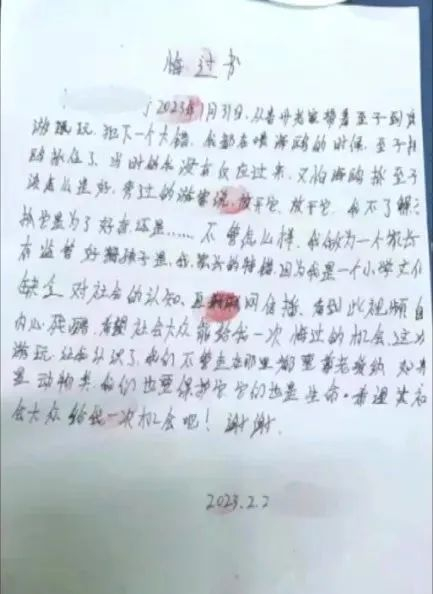 悔过书
2023年1月31日,从老家带着至子到
游玩玩,犯下一个大错,我都在喂海鸥的时候,至子把
鸥抓住了,当时的我没有反应过来,又怕海鸥抓至子
该怎么是好,旁边的游客说,放开它,放开它,我不了解
抓它是为了好奇还是……不管怎么样,我做为一个家长
有监督好孩子是我家长的特错,因为我是一个小学文化
缺乏对社会的认知,网传播,看到此视频
内心,希望社会大众能给我一次悔过的机会,
游玩,认识了,我们不管走在那里都要
是动物类,他们也要保护它它们也是生命。希望
会大众给我一次机会吧!谢谢.
2023.2.2